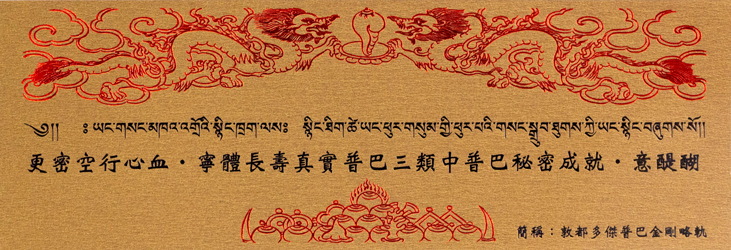 ༄༅།། ༔ ཡང་གསང་མཁའ་འགྲོའི་སྙིང་ཁྲག་ལས༔ སྙིང་ཐིག་ཚེ་ཡང་ཕུར་གསུམ་གྱི་ཕུར་པའི་གསང་སྒྲུབ་ཐུགས་ཀྱི་ཡང་སྙིང་བཞུགས་སོ།།
更密空行心血・寧體長壽真實普巴三類中普巴秘密成就・意醍醐
簡稱：敦都多傑普巴金剛略軌